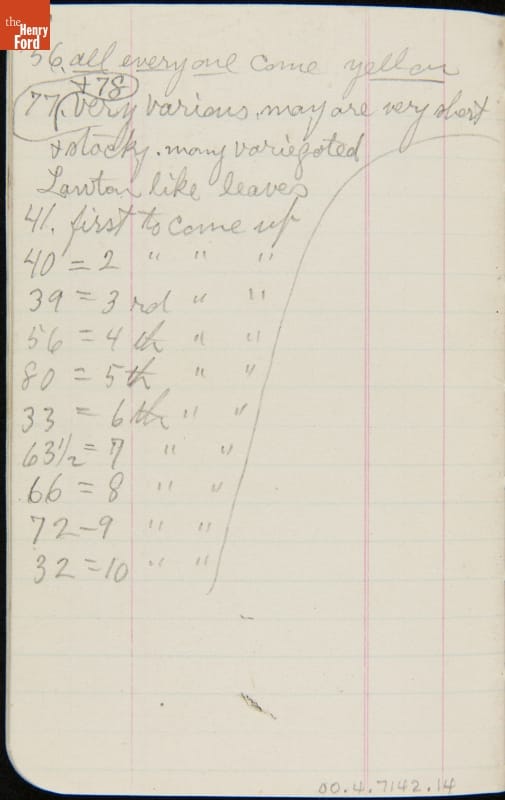 the
Henry
Ford
56. all everyone come yellow
+ 78
77. very various. may are very short
& stocky. many variegated
Lawton like leaves
41. first to come up
40 = 2 " " "
39 = 3rd " "
56 = 4th " "
80 = 5th " "
33 = 6th " "
63½ = 7 " "
66 = 8 " "
72 - 9 " "
32 = 10 " "
00.4.7142.14